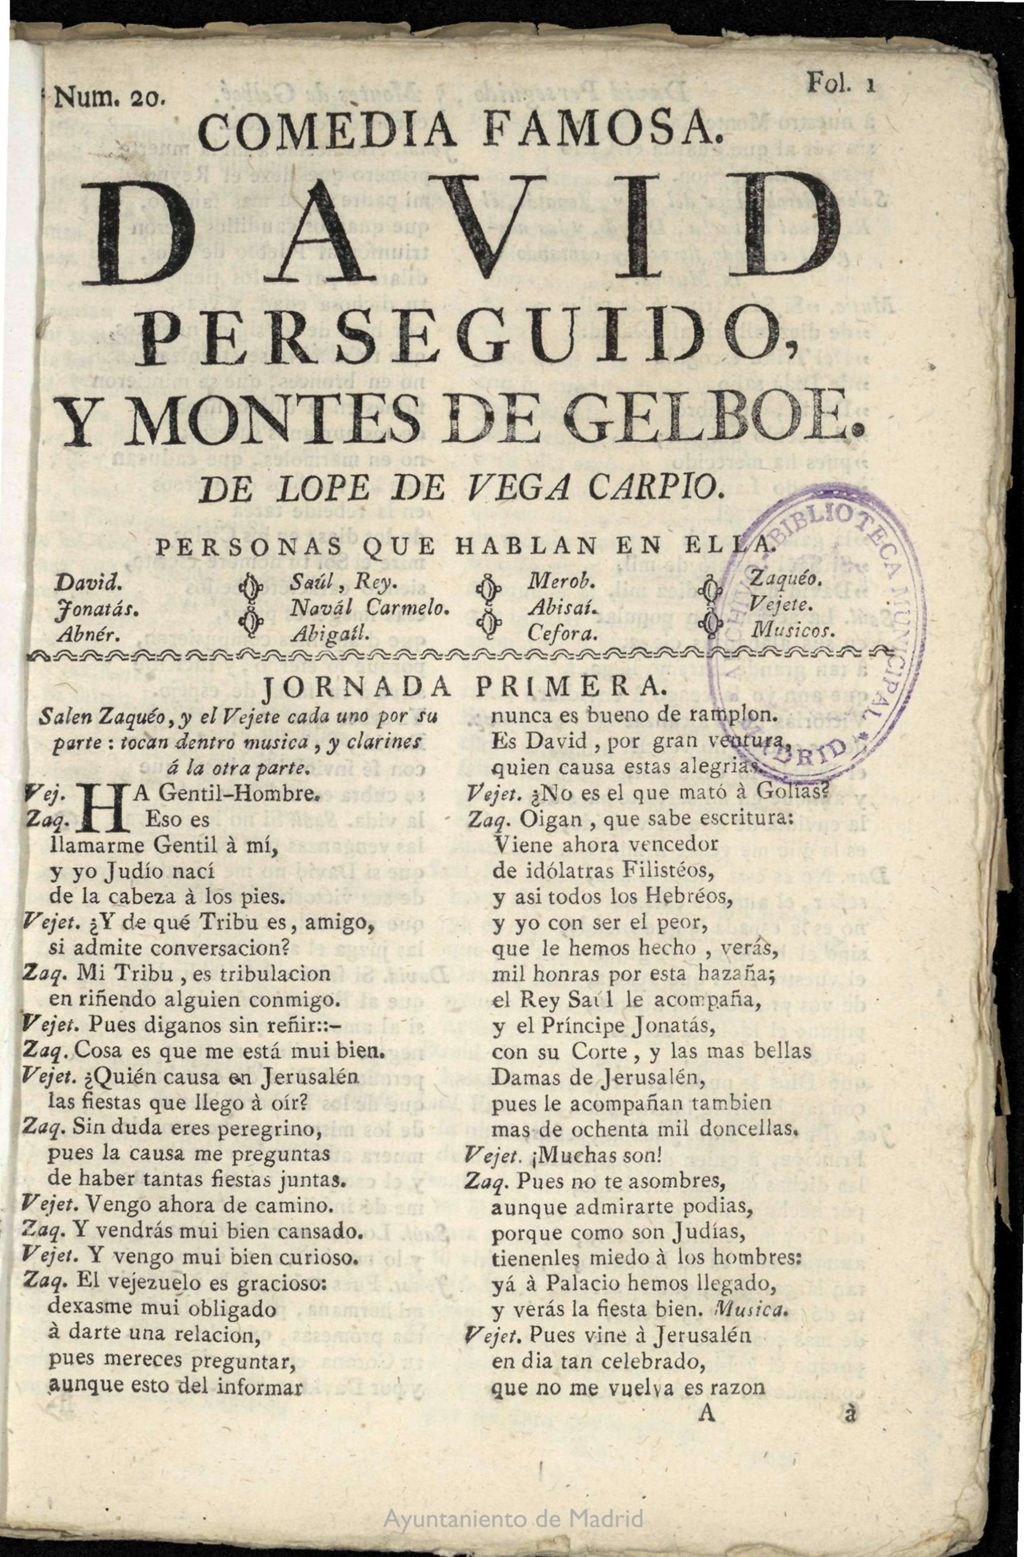 Num. 20.
Fol. 1
COMEDIA FAMOSA.
DAVID
PERSEGUIDO,
Y MONTES DE GELBOE.
DE LOPE DE VEGA CARPIO.
PERSONAS QUE HABLAN EN ELLA.
David.
Jonatás.
Abnér.
Saúl, Rey.
Navál Carmelo.
Abigaíl.
Merob.
Abisaí.
Cefora.
Zaquéo.
Vejete.
Musicos.
JORNADA PRIMERA.
Salen Zaquéo, y el Vejete cada uno por su
parte: tocan dentro musica, y clarines
á la otra parte.
Vej. HA Gentil-Hombre.
Zaq. Eso es
llamarme Gentil à mí,
y yo Judío nací
de la cabeza à los pies.
Vejet. ¿Y de qué Tribu es, amigo,
si admite conversacion?
Zaq. Mi Tribu, es tribulacion
en riñendo alguien conmigo.
Vejet. Pues diganos sin reñir::-
Zaq. Cosa es que me está mui bien.
Vejet. ¿Quién causa en Jerusalén
las fiestas que llego à oír?
Zaq. Sin duda eres peregrino,
pues la causa me preguntas
de haber tantas fiestas juntas.
Vejet. Vengo ahora de camino.
Zaq. Y vendrás mui bien cansado.
Vejet. Y vengo mui bien curioso.
Zaq. El vejezuelo es gracioso:
dexasme mui obligado
à darte una relacion,
pues mereces preguntar,
aunque esto del informar
nunca es bueno de ramplon.
Es David, por gran ventura,
quien causa estas alegrias.
Vejet. ¿No es el que mató à Golías?
Zaq. Oigan, que sabe escritura:
Viene ahora vencedor
de idólatras Filistéos,
y asi todos los Hebréos,
y yo con ser el peor,
que le hemos hecho, verás,
mil honras por esta hazaña;
el Rey Saúl le acompaña,
y el Príncipe Jonatás,
con su Corte, y las mas bellas
Damas de Jerusalén,
pues le acompañan tambien
mas de ochenta mil doncellas.
Vejet. ¡Muchas son!
Zaq. Pues no te asombres,
aunque admirarte podias,
porque como son Judías,
tienenles miedo à los hombres:
yá à Palacio hemos llegado,
y verás la fiesta bien. Musica.
Vejet. Pues vine à Jerusalén
en dia tan celebrado,
que no me vuelva es razon
A
à
BIBLIOTECA MUNICIPAL
MADRID
Ayuntamiento de Madrid